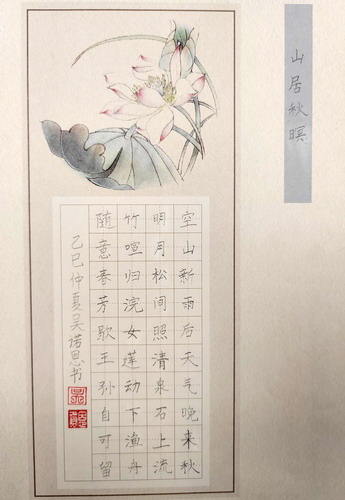 山居秋暝
空山新雨后天气晚来秋
明月松间照清泉石上流
竹喧归浣女莲动下渔舟
随意春芳歇王孙自可留
乙巳仲夏吴诺思书